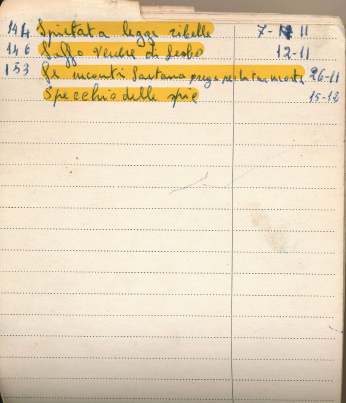 144 Spietata legge ribelle 7-11
146 Saffo Venere di Lesbo 12-11
153 Se incontri Sartana prega per la tua morte 26-11
Specchio delle spie 15-12